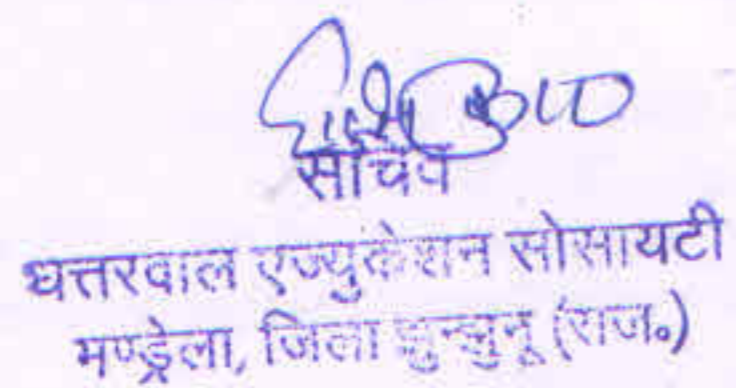 सचिव
धत्तरवाल एज्युकेशन सोसायटी
मण्ड्रेला, जिला झुन्झुनू (राज०)